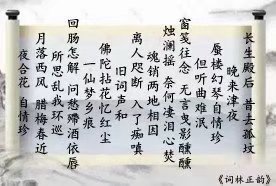 长生殿后 昔去孤坟
晚来津夜
蜃楼幻琴自情珍
但听曲难泯
窗笺往念 无言曳影醺醺
烛澜摇 奈何凄泪心焚
魂销两地相因
离人咫断 入了痴嗔
旧词声和
佛陀拈花忆红尘
一仙梦乡痕
回肠怎解 问愁滞酒依唇
所思乱我环巡
月落西风 腊梅春近
夜合花 自情珍
《词林正韵》